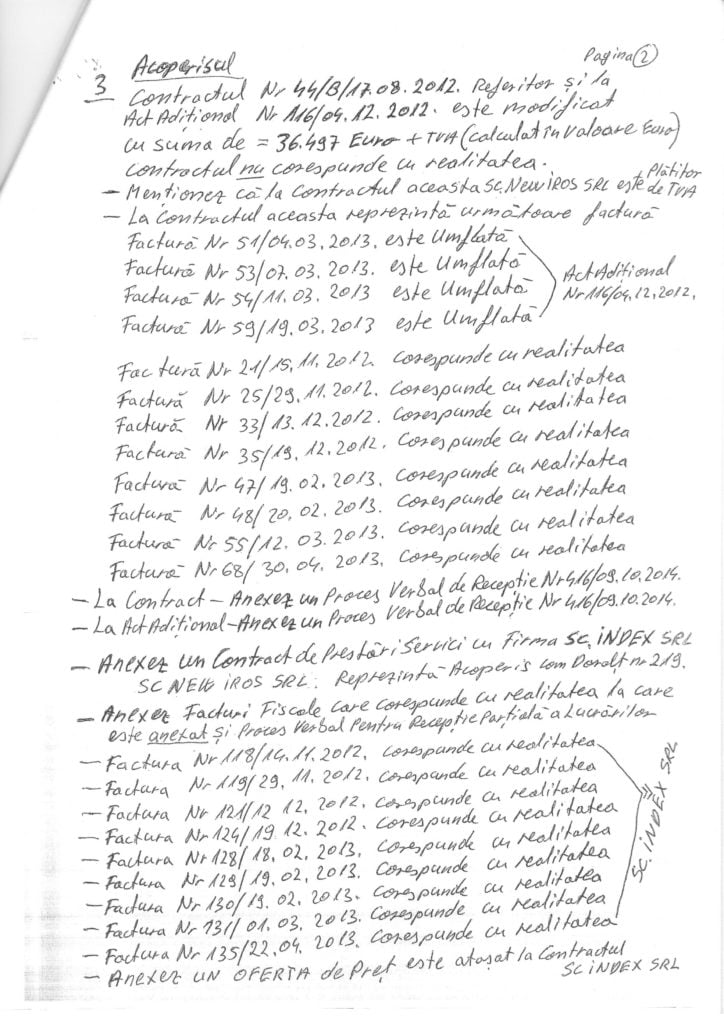 Pagina 2
3 Acoperisul
Contractul Nr 44/B/17.08.2012. Referitor și la
Act Adițional Nr 116/04.12.2012. este modificat
cu suma de = 36.497 Euro + TVA (calculat in valoare Euro)
Contractul nu corespunde cu realitatea.
- Mentionez că la Contractul aceasta SC. New iROS SRL este + Plătitor de TVA
- La Contractul aceasta reprezintă următoare factură
Factură Nr 51/04.03.2013. este Umflată
Factură Nr 53/07.03.2013. este Umflată
Factură Nr 54/11.03.2013 este Umflată
Factură Nr 59/19.03.2013 este Umflată
Act Adițional
Nr 116/04.12.2012.
Factură Nr 21/15.11.2012. Corespunde cu realitatea
Factură Nr 25/29.11.2012. Corespunde cu realitatea
Factură Nr 33/13.12.2012. Corespunde cu realitatea
Factură Nr 35/19.12.2012. Corespunde cu realitatea
Factură Nr 47/19.02.2013. Corespunde cu realitatea
Factură Nr 48/20.02.2013. Corespunde cu realitatea
Factură Nr 55/12.03.2013. Corespunde cu realitatea
Factură Nr 68/30.04.2013. Corespunde cu realitatea
- La Contract - Anexez un Proces Verbal de Recepție Nr 416/09.10.2014.
- La Act Adițional - Anexez un Proces Verbal de Recepție Nr 416/09.10.2014.
- Anexez un Contract de Prestări Servici cu Firma SC. iNDEX SRL
SC NEW iROS SRL. Reprezintă Acoperis com Doralț nr 219.
- Anexez Facturi Fiscale care corespunde cu realitatea la care
este anexat și Proces Verbal Pentru Recepție Parțială a Lucrărilor
- Factura Nr 118/14.11.2012. Corespunde cu realitatea
- Factura Nr 119/29.11.2012. Corespunde cu realitatea
- Factura Nr 121/12 12.2012. Corespunde cu realitatea
- Factura Nr 124/19 12.2012. Corespunde cu realitatea
- Factura Nr 128/18.02.2013. Corespunde cu realitatea
- Factura Nr 129/19.02.2013. Corespunde cu realitatea
- Factura Nr 130/19.02.2013. Corespunde cu realitatea
- Factura Nr 131/01.03.2013. Corespunde cu realitatea
- Factura Nr 135/22.04.2013. Corespunde cu realitatea
SC. iNDEX SRL
- ANEXEZ UN OFERTA de Preț este atașat la Contractul
SC iNDEX SRL